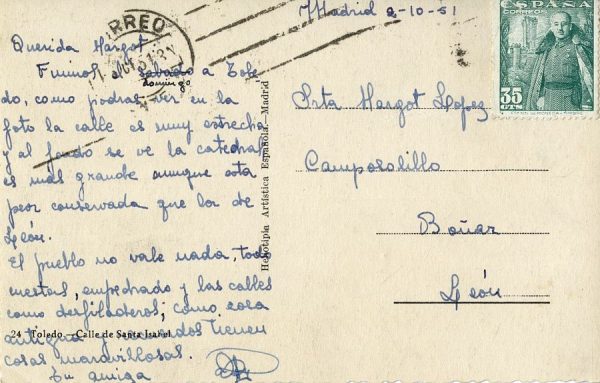 Madrid 2-10-51
CORREO
ESPAÑA
CORREOS
35
CTS
Querida Margot
Fuimos el sabado a Tole
domingo
do, como podras ver en la
foto la calle es muy estrecha
y al fondo se ve la catedral
es mas grande aunque esta
peor conservada que la de
León.
El pueblo no vale nada, todo
cuestas, empedrado y las calles
como desfiladeros; como cosa
antigua y recuerdos tienen
cosas maravillosas.
Tu amiga
24 Toledo.—Calle de Santa Isabel.
Heliotipia Artística Española.—Madrid
Srta Margot Lopez
Camposolillo
Boñar
León